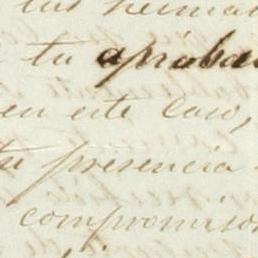 tus herma
tu aproba
en este caso,
tu presencia
compromiso